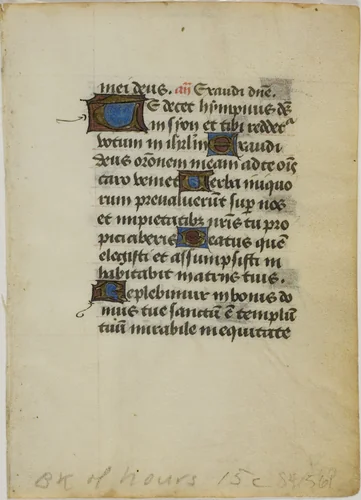 mei deus. an̄ Exaudi dn̄e.
TE decet hympnus ds̄
in syon et tibi reddet᷑
votum in ihrl̄m Exaudi
deus or̄onem meam ad te oīs
caro veniet Verba iniquo
rum prevaluerūt sup̄ nos
et impietatibꝫ nr̄is tu pro
piciaberis Beatus quē
elegisti et assumpsisti in
habitabit in atriis tuis.
Replebimur in bonis do
mus tue sanctū ē templū
tuū mirabile in equitate
BK of Hours 15c